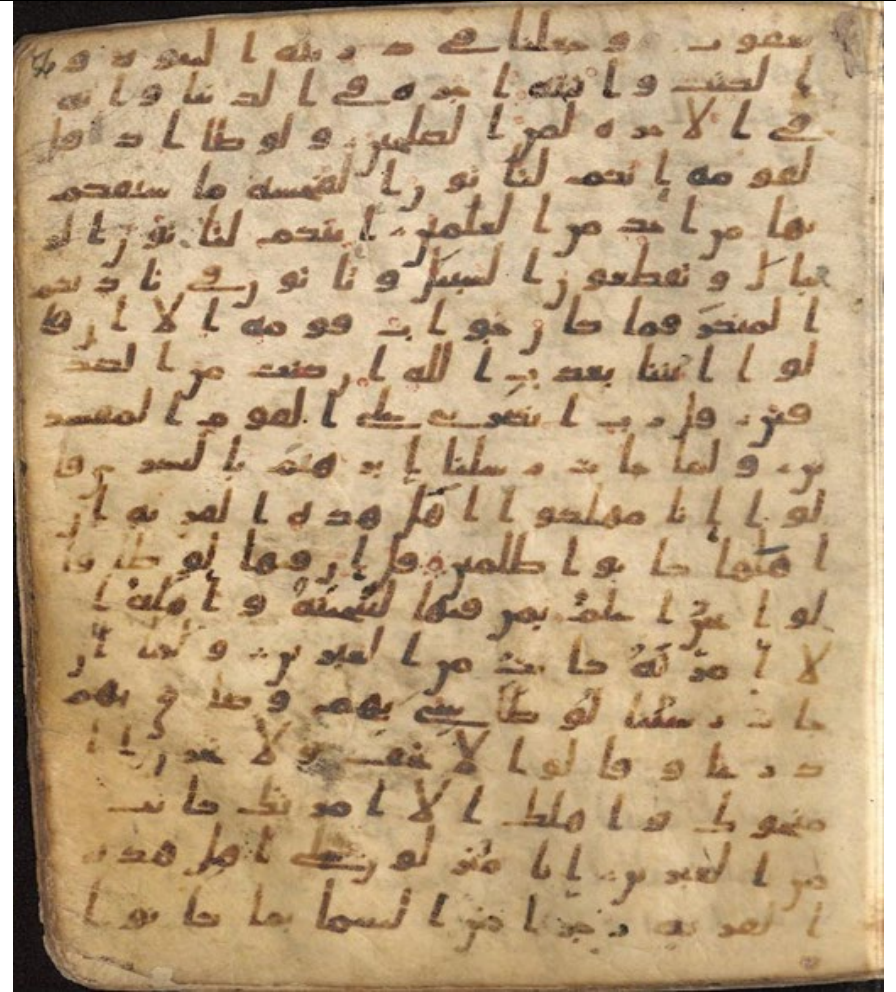 يعقوب وجعلنا في ذريته النبوة و
الكتب واتينه اجره في الدنيا وانه
في الاخرة لمن الصلحين ولوطا اذ قل
لقومه انكم لتاتون الفحشة ما سبقكم
بها من احد من العلمين ائنكم لتاتون الر
جال وتقطعون السبيل وتاتون في ناديكم
المنكر فما كان جواب قومه الا ان قا
لوا ائتنا بعذب الله ان كنت من الصد
قين قل رب انصرني على القوم المفسد
ين ولما جات رسلنا ابرهيم بالبشرى قا
لوا انا مهلكوا اهل هذه القرية ان
اهلها كانوا ظلمين قل ان فيها لوطا قا
لوا نحن اعلم بمن فيها لننجينه واهله ا
لا امرته كانت من الغبرين ولما ان
جات رسلنا لوطا سيى بهم وضاق بهم
ذرعا وقالوا لا تخف ولا تحزن انا
منجوك واهلك الا امرتك كانت
من الغبرين انا منزلون على اهل هذه
القرية رجزا من السما بما كانوا